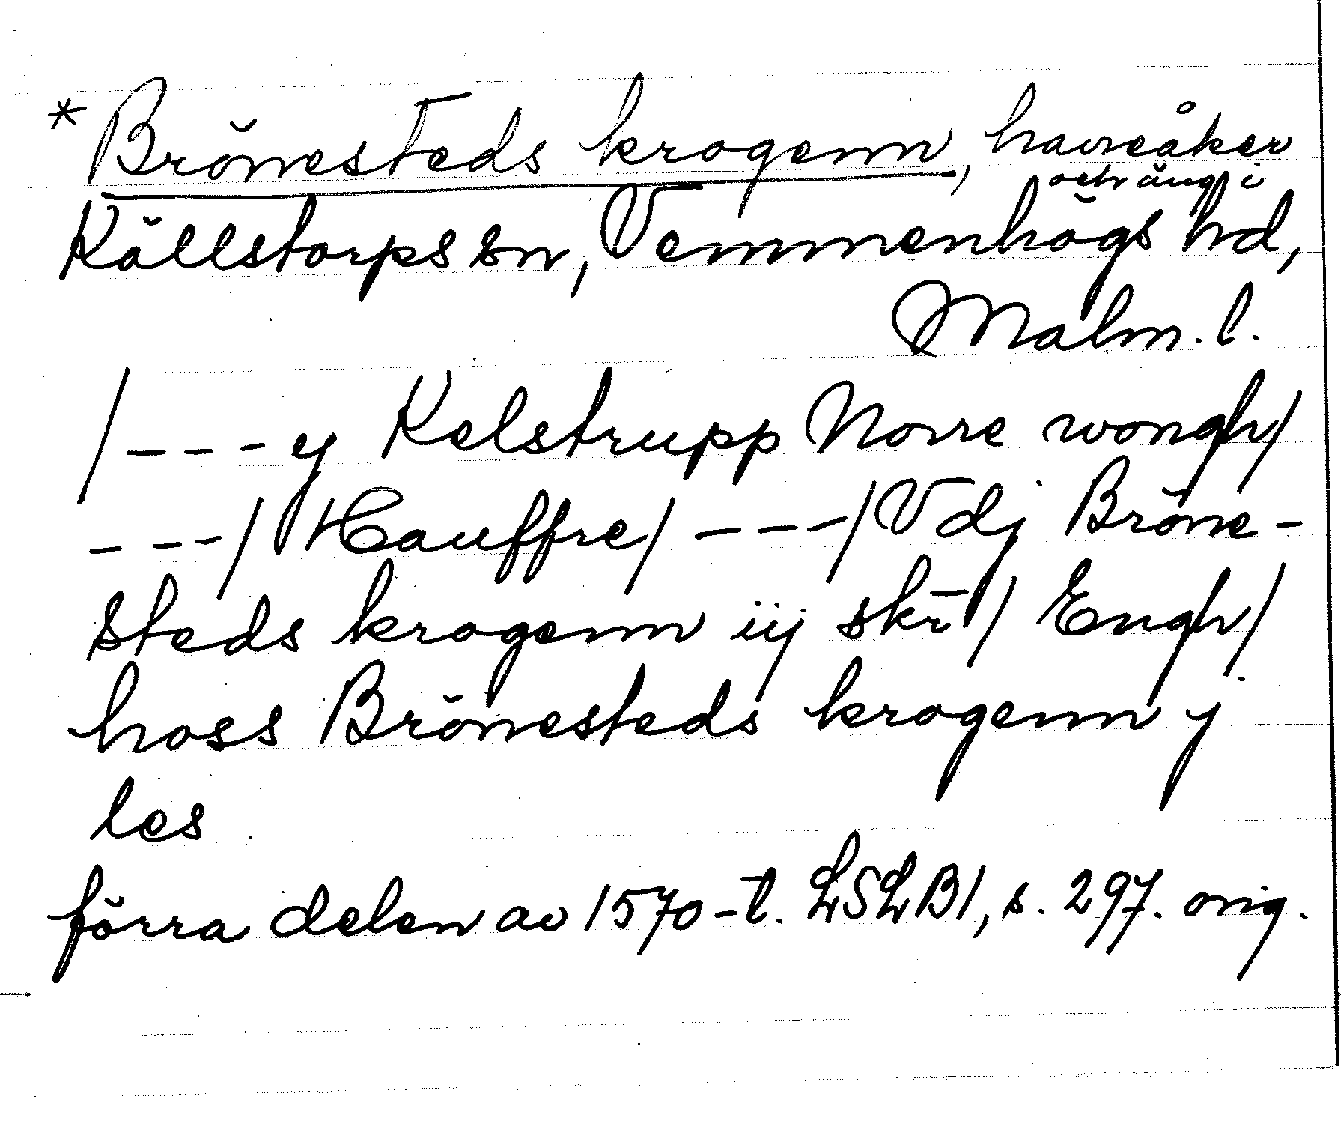 *Brönesteds krogenn, havreåker
och äng i
Källstorps sn, Vemmenhögs hd,
Malm. l.
/---y Kelstrupp Norre wongh/
---/ Hauffre/ ---/ Vdj Bröne-
steds krogenn iij skr̄/ Engh/
hoss Brönesteds krogenn j
les
förra delen av 1570-t. LSLB1, s. 297. orig.